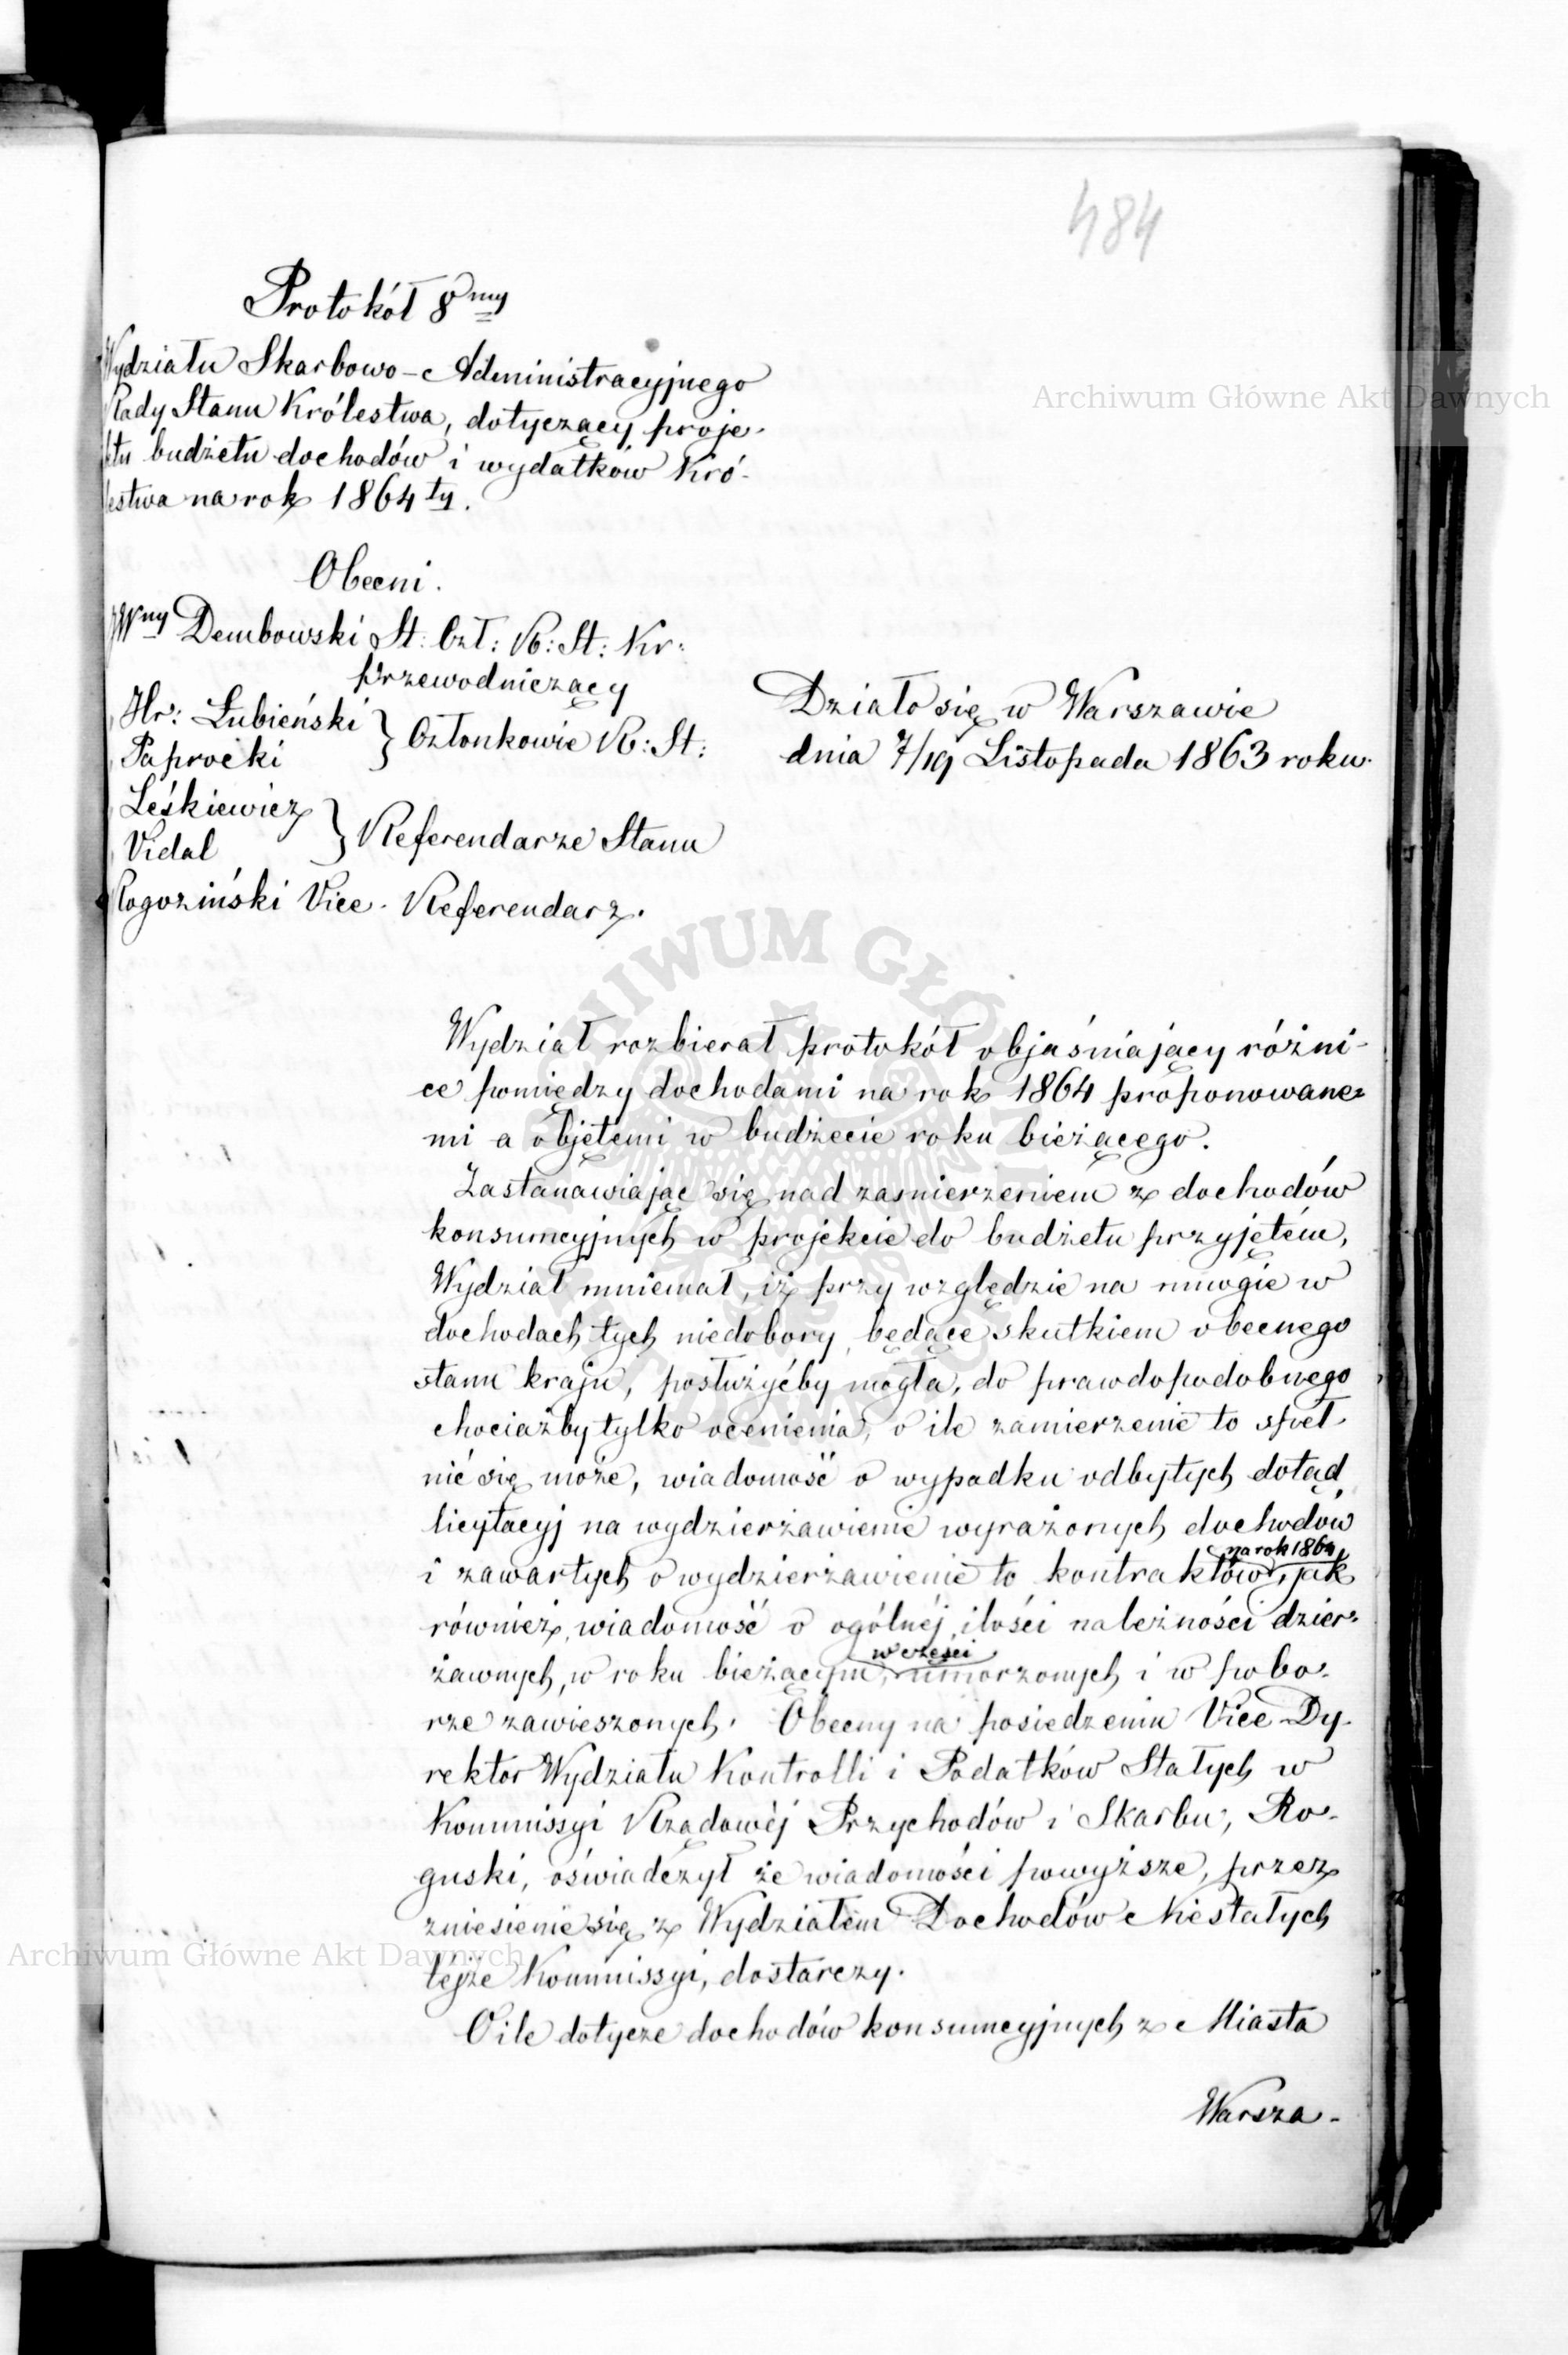 484
Protokół 8my
Wydziału Skarbowo-Administracyjnego
Rady Stanu Królestwa, dotyczący proje-
ktu budżetu dochodów i wydatków Kró-
lestwa na rok 1864ty.
Obecni.
JWny Dembowski St: Czł: R: St: Kr:
przewodniczący
Hr: Łubieński
Paprocki
} Członkowie R: St:
Leśkiewicz
Vidal
} Referendarze Stanu
Rogoziński Vice-Referendarz.
Działo się w Warszawie
dnia 7/19 Listopada 1863 roku.
Wydział rozbierał protokół objaśniający różni-
ce pomiędzy dochodami na rok 1864 proponowane-
mi a objętemi w budżecie roku bieżącego.
Zastanawiając się nad zamierzeniem z dochodów
konsumcyjnych w projekcie do budżetu przyjętém,
Wydział mniemał, iż przy względzie na mnogie w
dochodach tych niedobory, będące skutkiem obecnego
stanu kraju, posłużyćby mogła, do prawdopodobnego
chociażby tylko ocenienia, o ile zamierzenie to speł-
nić się może, wiadomość o wypadku odbytych dotąd
licytacyj na wydzierżawienie wyrażonych dochodów
na rok 1864
i zawartych o wydzierżawienie to kontraktów, jak
również, wiadomość o ogólnéj ilości należności dzier-
w części
żawnych, w roku bieżącym, umorzonych i w pobo-
rze zawieszonych. Obecny na posiedzeniu Vice-Dy-
rektor Wydziału Kontrolli i Podatków Stałych w
Kommissyi Rządowéj Przychodów i Skarbu, Ro-
guski, oświadczył że wiadomości powyższe, przez
zniesienie się z Wydziałem Dochodów Niestałych
tejże Kommissyi, dostarczy.
O ile dotycze dochodów konsumcyjnych z Miasta
Warsza-
Archiwum Główne Akt Dawnych
Archiwum Główne Akt Dawnych